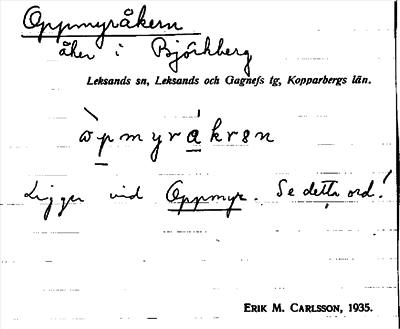 Oppmyråkern
åker i Björkberg
Leksands sn, Leksands och Gagnefs tg, Kopparbergs län.
Ligger vid Oppmyr. Se detta ord!
ERIK M. CARLSSON, 1935.